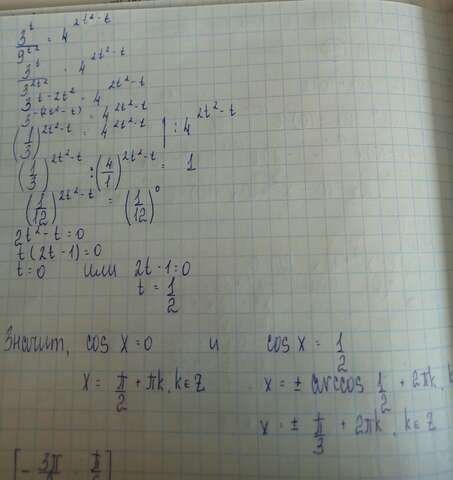 3^t / 9^(t²) = 4^(2t²-t)
3^t / 3^(2t²) = 4^(2t²-t)
3^(t-2t²) = 4^(2t²-t)
3^(-(2t²-t)) = 4^(2t²-t)
(1/3)^(2t²-t) = 4^(2t²-t) | : 4^(2t²-t)
(1/3)^(2t²-t) : (4/1)^(2t²-t) = 1
(1/12)^(2t²-t) = (1/12)^0
2t²-t=0
t(2t-1)=0
t=0 или 2t-1=0
t = 1/2
Значит, cos x=0 и cos x = 1/2
x = π/2 + πk, k∈Z x = ± arccos 1/2 + 2πk,
x = ± π/3 + 2πk, k∈Z